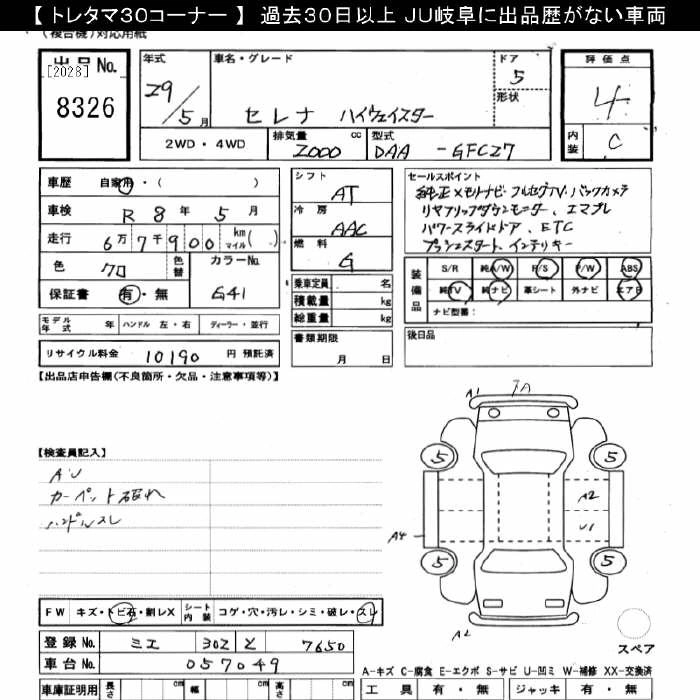 【 トレタマ30コーナー 】 過去30日以上 JU岐阜に出品歴がない車両
(複合機)対応用紙
出品No.
[2028]
8326
年式
29/5月
車名・グレード
セレナ ハイウェイスター
ドア
5
形状
評価点
4
内装
C
2WD・4WD
排気量 cc
2000
型式
DAA -GFC27
車歴 自家用・( )
車検 R 8年 5月
走行 6万7千900 km マイル( )
色 クロ 色替
カラーNo.
G41
保証書 有・無
シフト
AT
冷房
AAC
燃料
G
乗車定員 名
積載量 kg
総重量 kg
セールスポイント
純正メモリナビ・フルセグTV・バックカメラ
リヤフリップダウンモニター、エマブレ
パワースライドドア、ETC
プッシュスタート、インテリキー
装備品
S/R 純A/W P/S P/W ABS
純TV 純ナビ 革シート 外ナビ エアB
ナビ型番:
モデル年式 年 ハンドル 左・右 ディーラー・並行
書類期限
月 日
後日品
リサイクル料金 10190 円 預託済
【出品店申告欄(不良箇所・欠品・注意事項等)】
A1
7A
【検査員記入】
AU
カーペット破れ
ハンドルスレ
5
5
A2
U1
A4
5
5
A2
スペア
FW キズ・トビ石・割レX
シート内装 コゲ・穴・汚レ・シミ・破レ・スレ
登録No. ミエ 302 と 7650
車台No. 057049
A-キズ C-腐食 E-エクボ S-サビ U-凹ミ W-補修 XX-交換済
車庫証明用 長さ cm 幅 cm 高さ cm
工具 有・無 ジャッキ 有・無